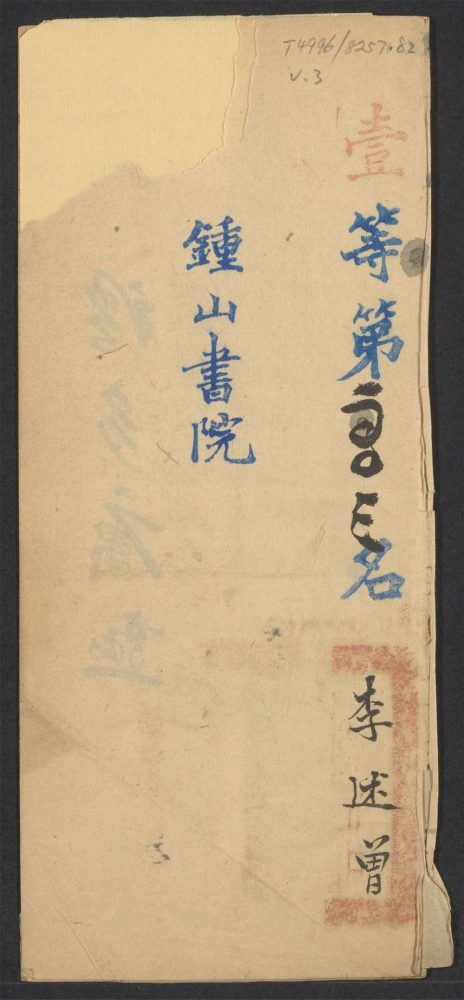 T4996/8257.82
v.3
壹等第二百〇三名 李述曾
鍾山書院